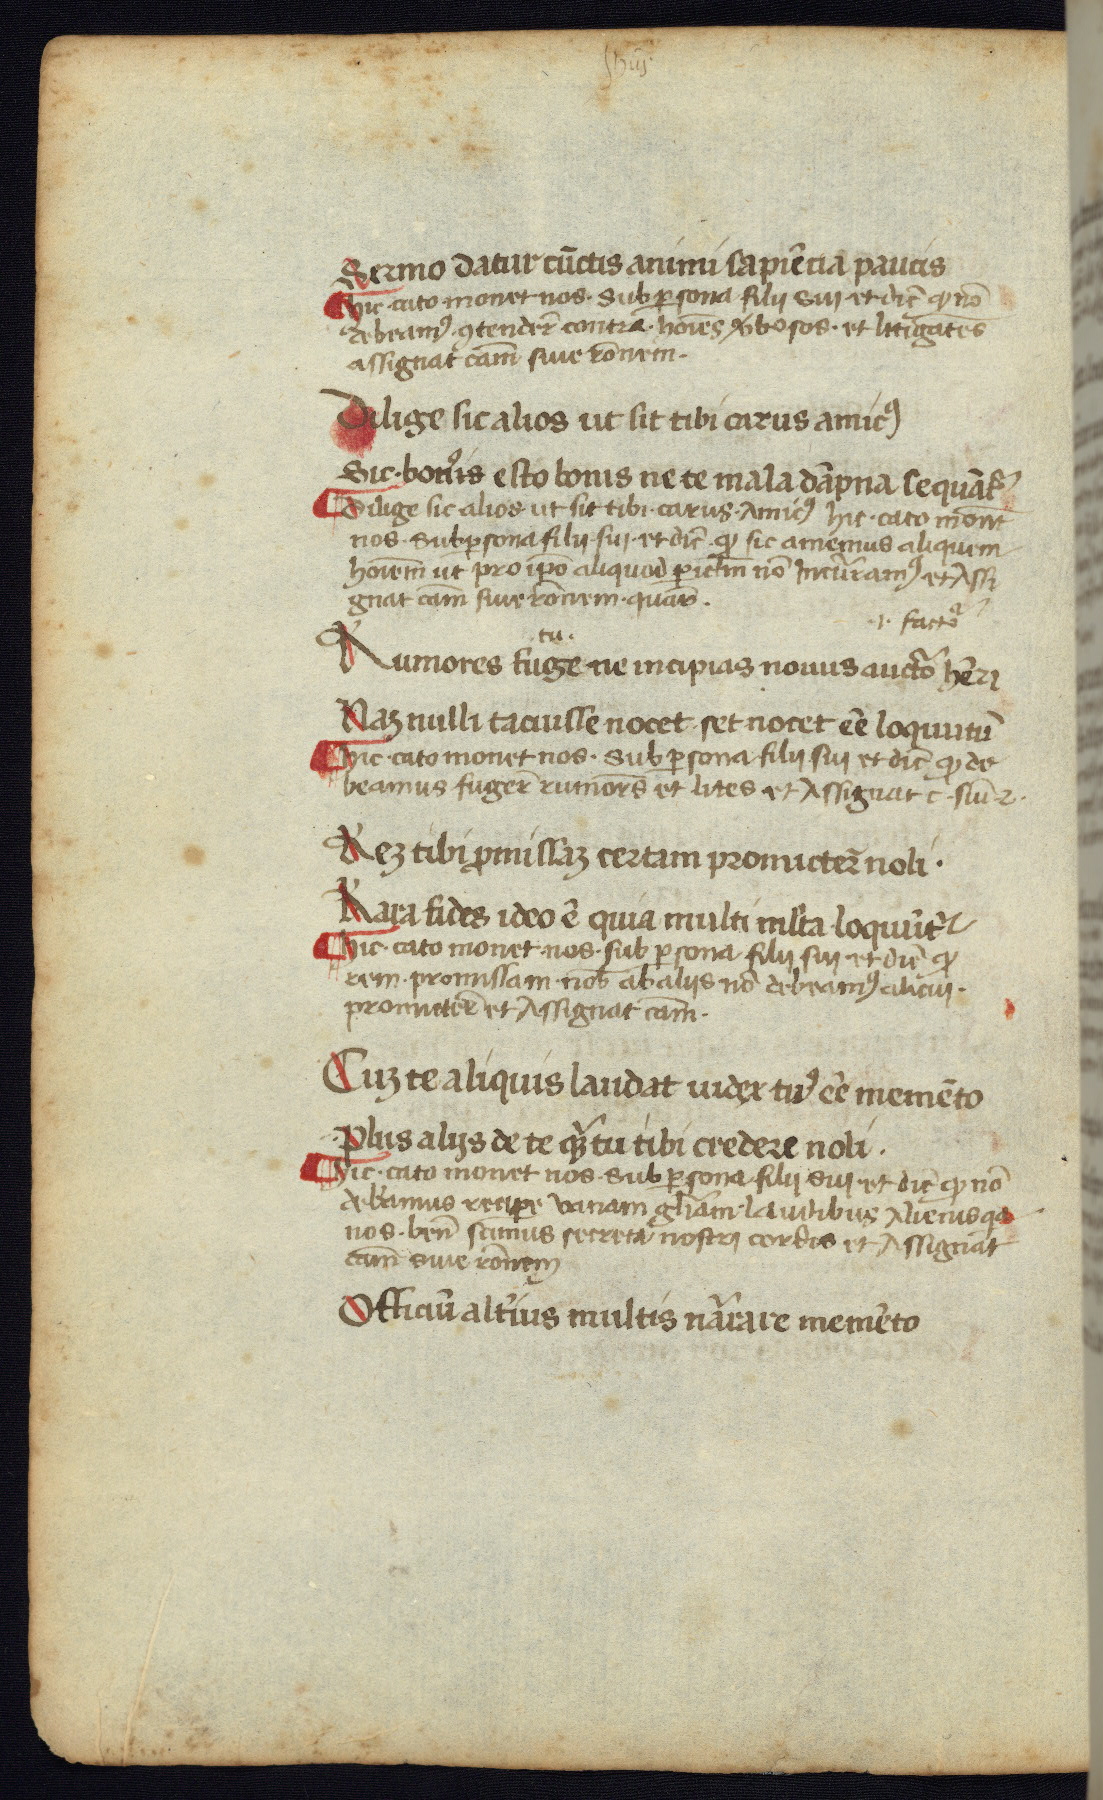 Sermo datur cūctis animi sapiēcia paucis
hic · cato monet nos · sub psona filij sui et dic̄ ꝙ nō
debeamꝰ ꝯtender̄ contra · hoīes ūbosos · et litigātes
assignat cām siue rōnem ·
Dilige sic alios ut sit tibi carus amicꝰ
Sic · bonis esto bonis ne te mala dāpna sequāt̄
Dilige sic alios ut sit tibi · carus · Amicꝰ hic · cato monet
nos · sub psona filij · sui · et dic̄ · ꝙ sic amemus aliquem
hoīem ut pro ip̄o aliquod picl̄m nō Incūramꝰ et Assi
gnat cām siue rōnem ·
·i· factor̄
·tu·
Rumores fuge ne incipias nouus auctor̄ hēri
Naꝫ nulli tacuisse nocet set nocet eē loquutū
hic · cato monet nos · sub psona filij sui et dic̄ ꝙ de
beamus fuger̄ rumōrs et lites et Assignat c̄ · siū · r̄ ·
Reꝫ tibi pmissaꝫ certam promicter̄ noli ·
Rara fides ideo ē quia multi ml̄ta loquūt̄
hic · cato monet nos · sub psona filij sui et dic̄ ꝙ
rem · promissam · nob̄ ab alijs nō debeamꝰ alicui ·
promicter̄ et Assignat cām ·
Cuꝫ te aliquis laudat iudex tuꝰ eē memēto
Plus alijs de te ꝙ̄ tu tibi credere noli ·
hic · cato monet nos · sub psona filij sui · et dic̄ ꝙ nō
debeamus recipe vanam gl̄iam laudibus Alienis
nos · ben̄ scimus secreta nostri cordis et Assignat
cām siue rōnem
Officiū alt̄ius multis nārare memēto